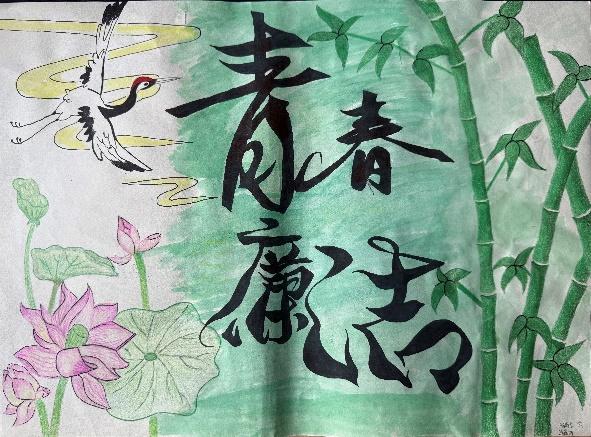 青春
廉洁